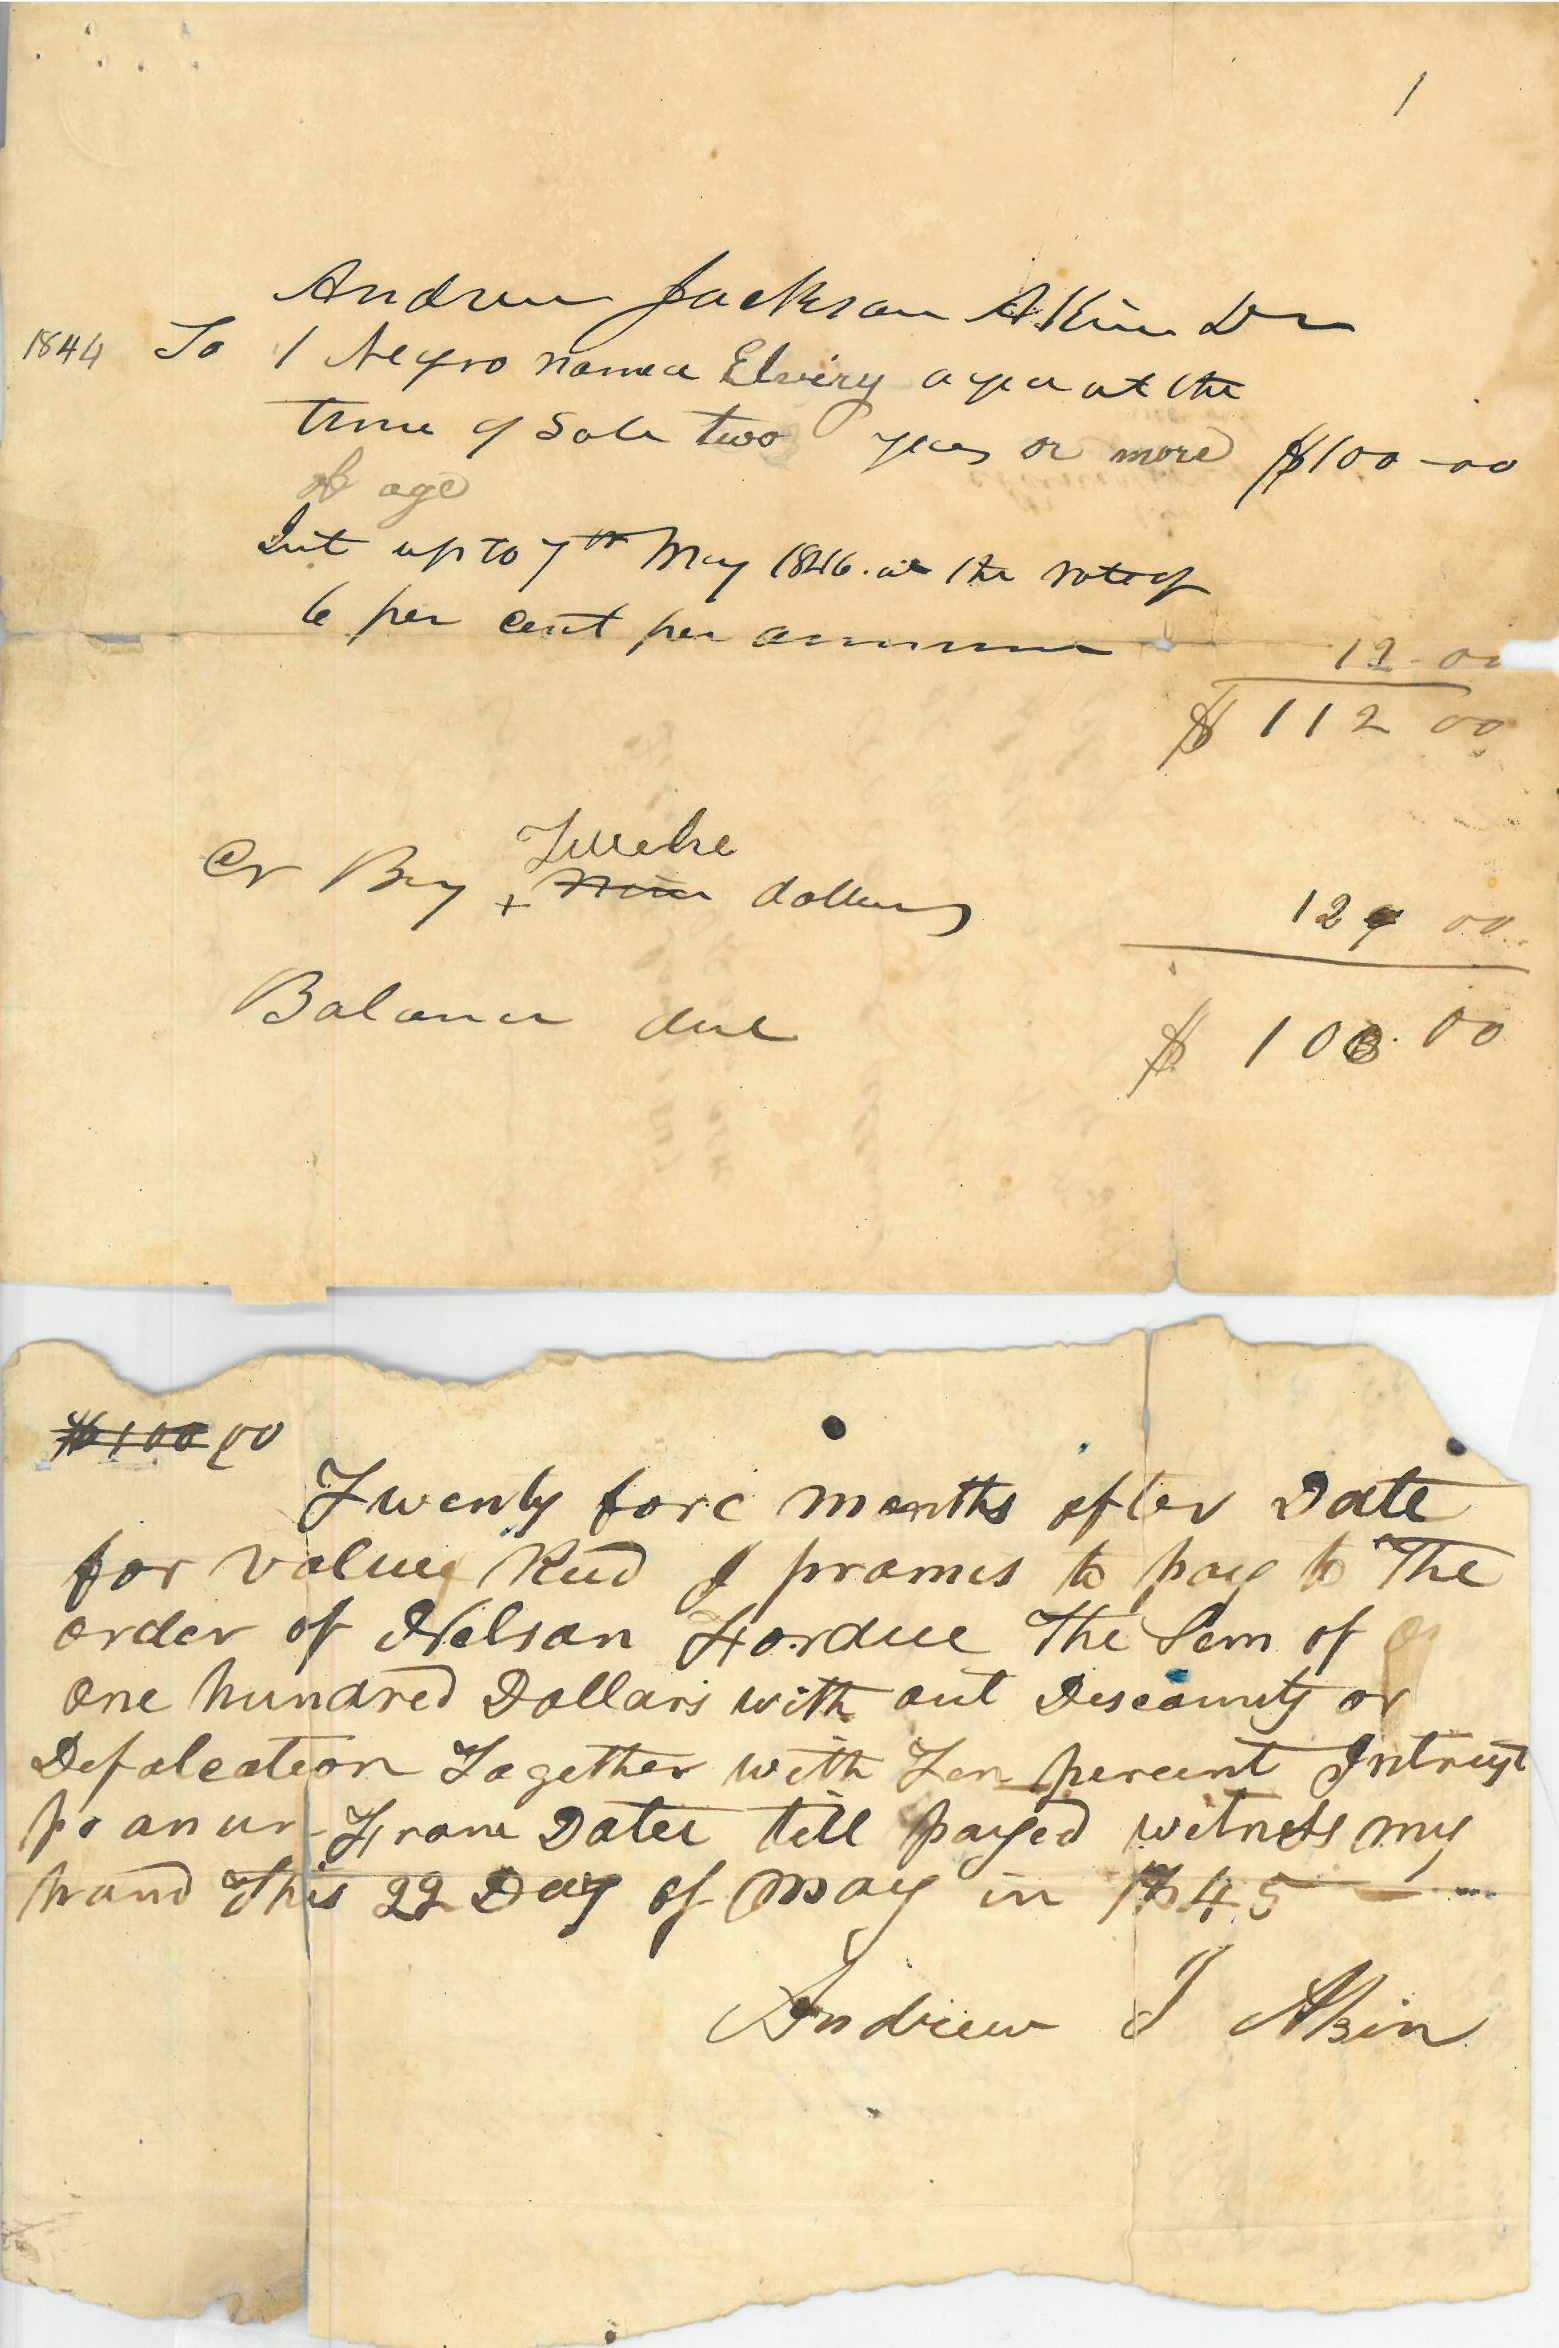 1
Andrew Jackson Akin Dr
1844 To 1 Negro named Elviry aged at the
time of Sale two years or more $100-00
of age
Int up to 7th May 1846. at the rate of
6 per cent per annum 12-00
$ 112 00
Twelve
Cr By + Nine dollars 12 9 00
Balance due $ 100.00
$100 00
Twenty fore months after Date
for value Recd I promis to pay to The
order of Nelson Fordue The Sem of
one hundred Dollars with out Discounty or
Defalcation Together with Ten percent Intrust
pr anur From Date till payed witness my
hand This 22 Day of May in 1845
Andrew J Akin